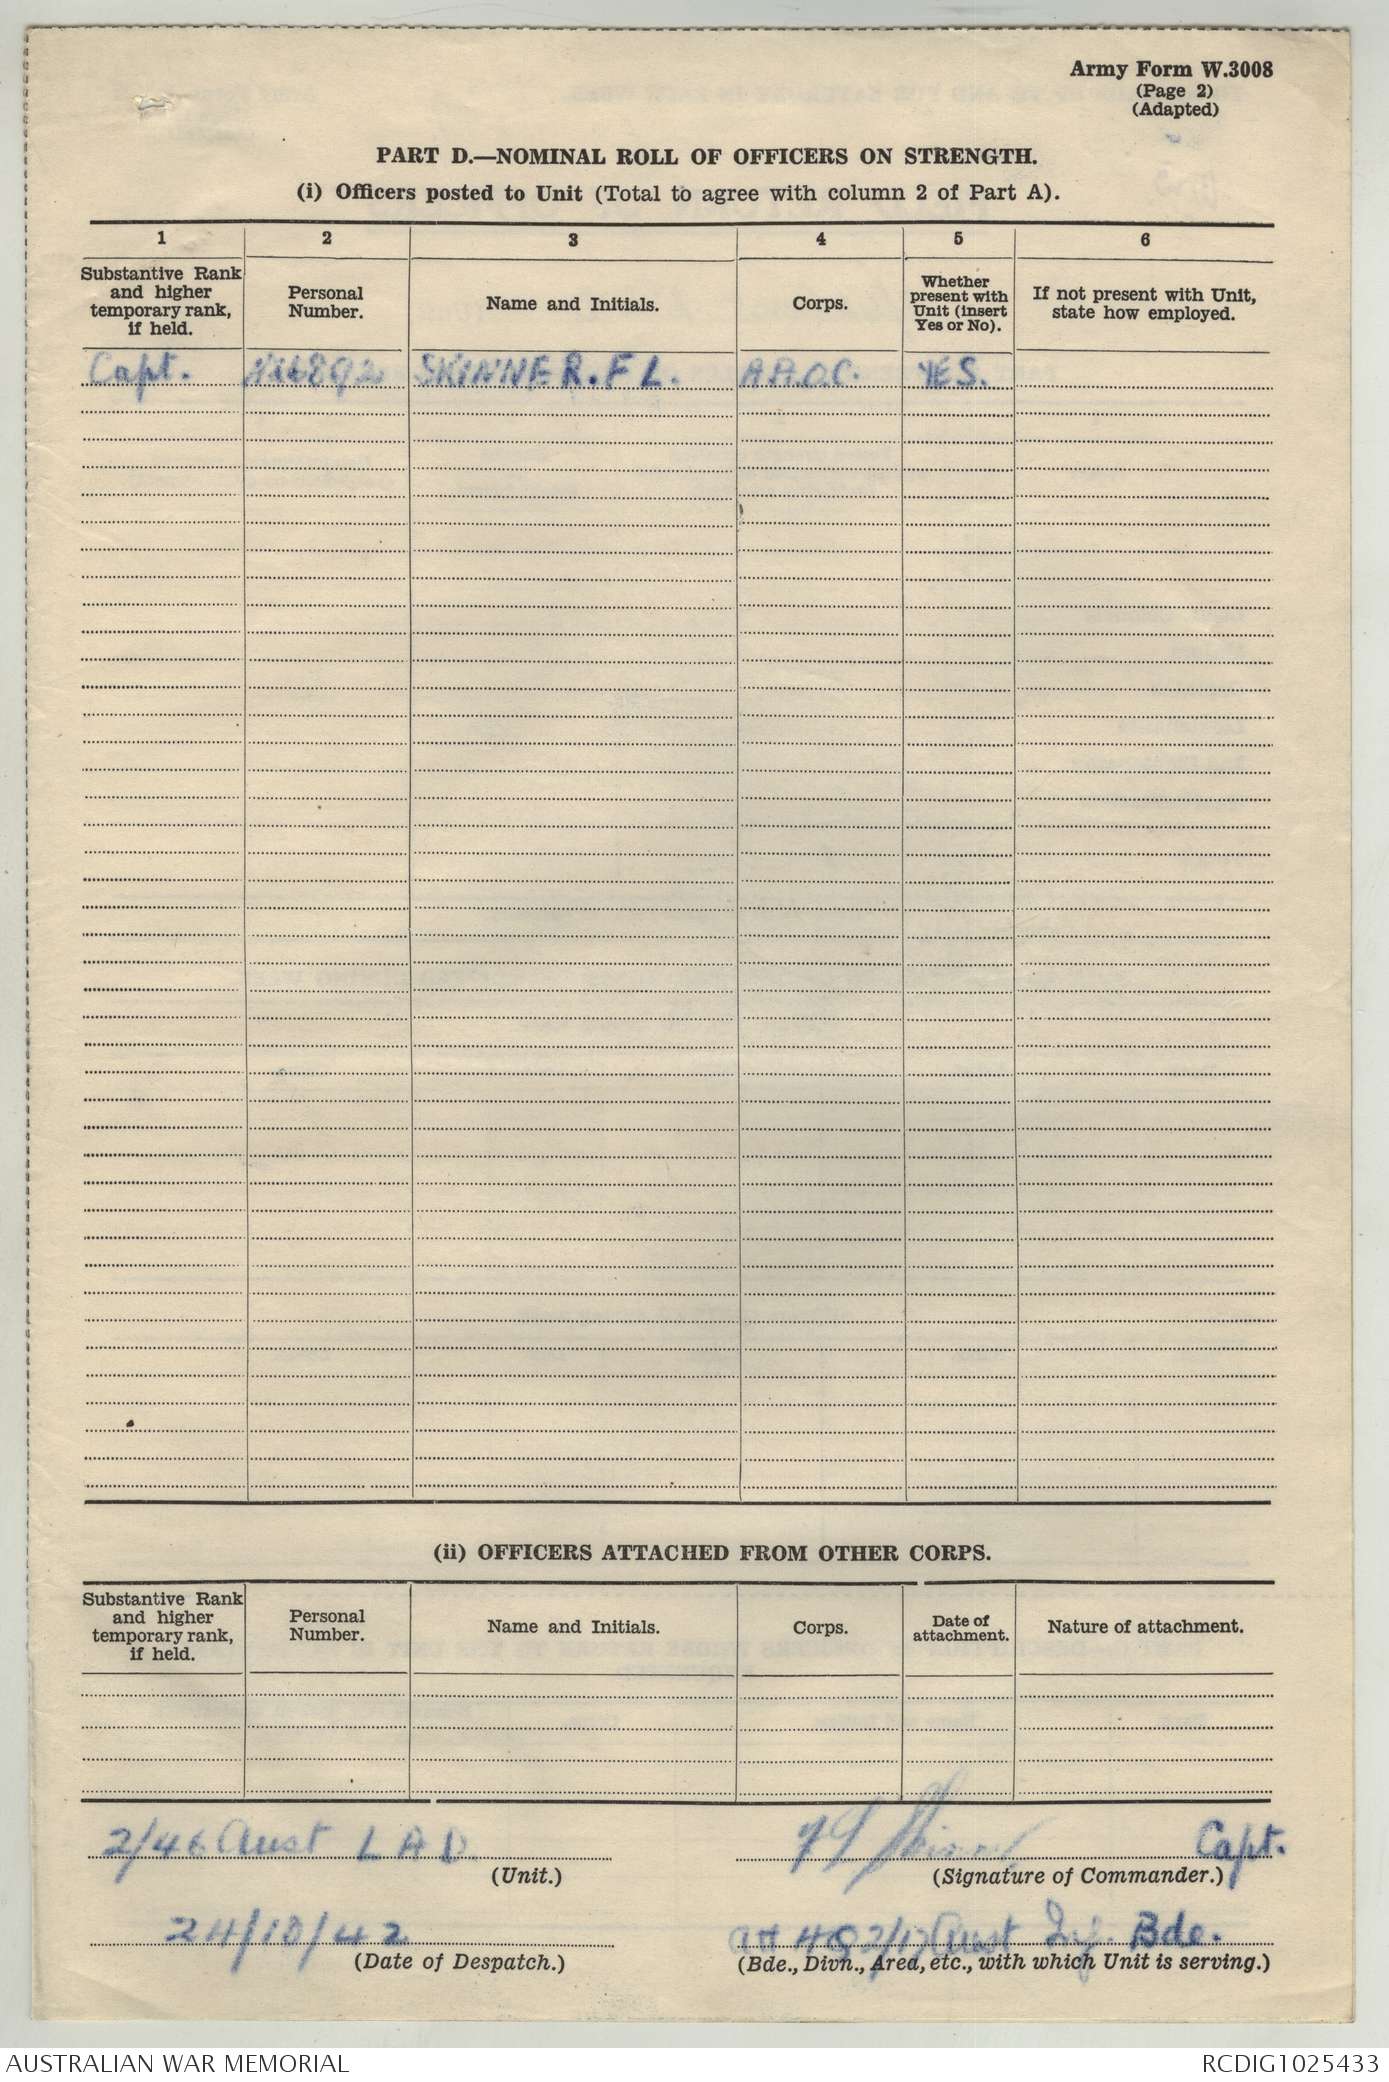 Army Form W.3008
(Page 2)
(Adapted)
PART D.—NOMINAL ROLL OF OFFICERS ON STRENGTH.
(i) Officers posted to Unit (Total to agree with column 2 of Part A).
1 2 3 4 5 6
Substantive Rank and higher temporary rank, if held. Personal Number. Name and Initials. Corps. Whether present with Unit (insert Yes or No). If not present with Unit, state how employed.
Capt. SKINNER. F L. A.A.O.C. YES.
(ii) OFFICERS ATTACHED FROM OTHER CORPS.
Substantive Rank and higher temporary rank, if held. Personal Number. Name and Initials. Corps. Date of attachment. Nature of attachment.
2/46 Aust L A D. F L Skinner Capt.
(Unit.) (Signature of Commander.)
24/10/42 att HQ 2/17 Aust Inf. Bde.
(Date of Despatch.) (Bde., Divn., Area, etc., with which Unit is serving.)
AUSTRALIAN WAR MEMORIAL RCDIG1025433